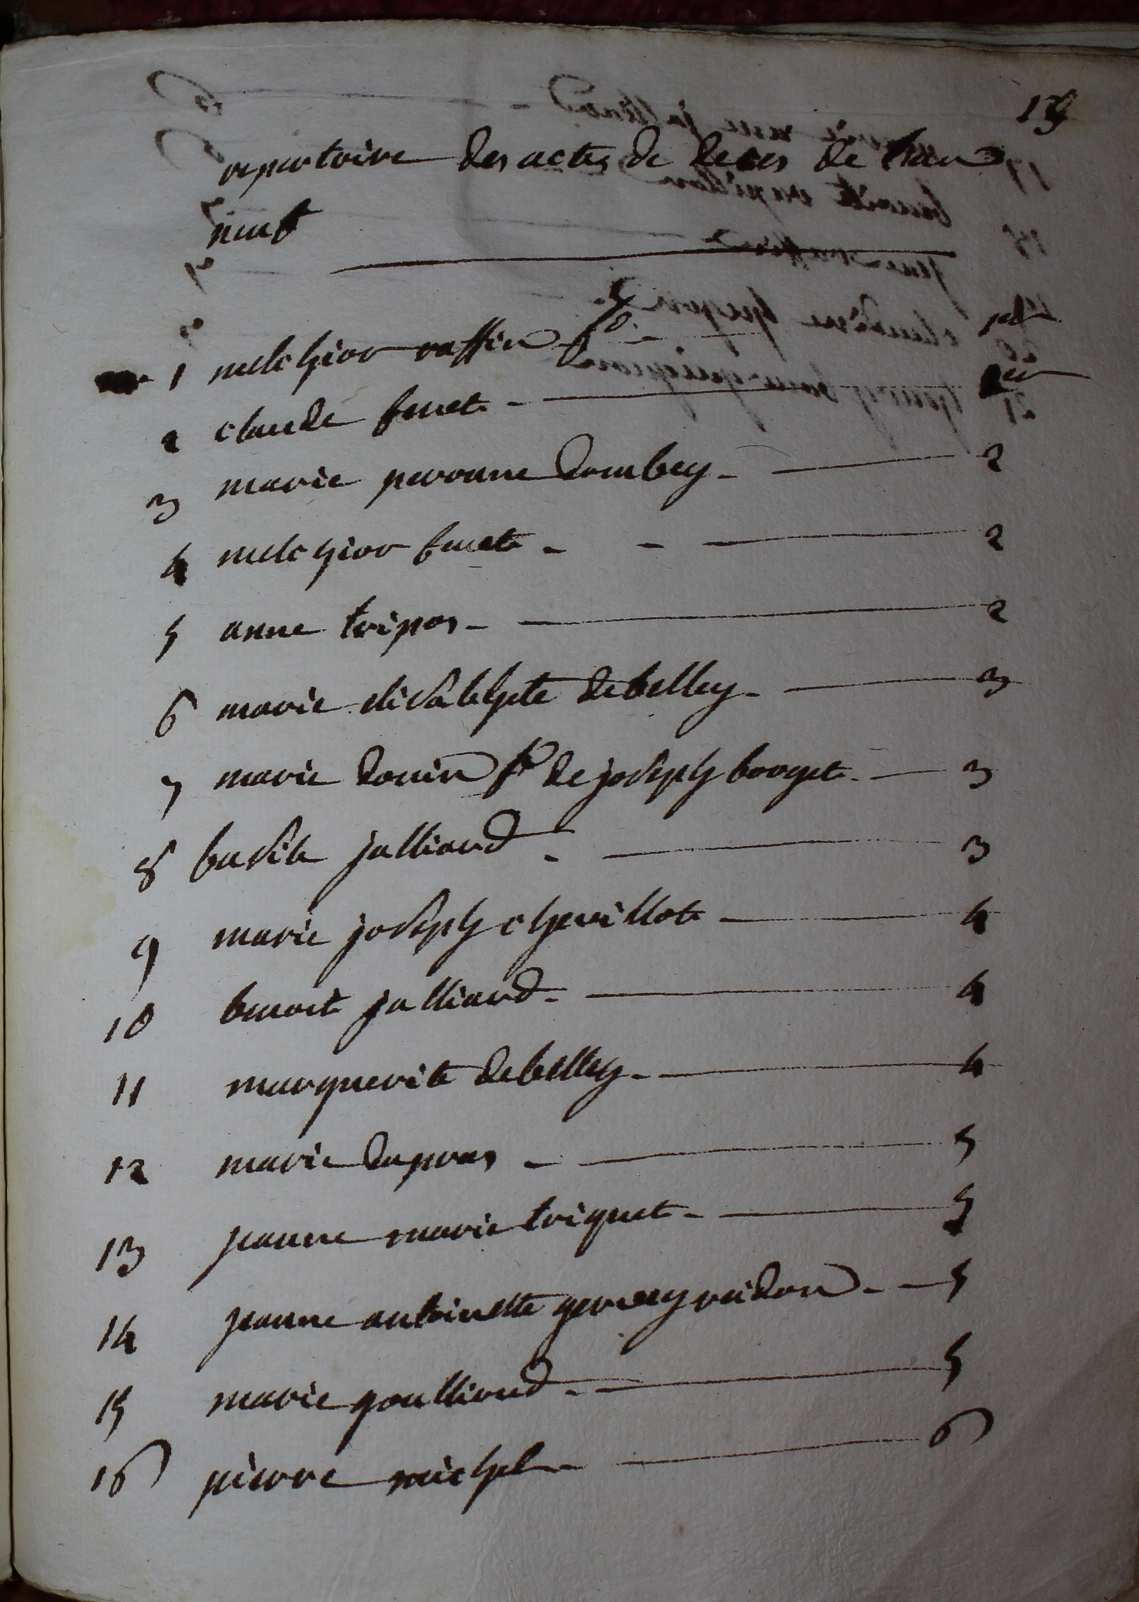 19
repertoire des actes de deces de l'an
neuf
1 melchior raffin fo - 1er
2 claude furet - 1er
3 marie perronne dombey - 2
4 melchior furet - - 2
5 anne tripos - 2
6 marie elisabhete debelley - 3
7 marie douin fe de joseph borget - 3
8 basile jalliard - 3
9 marie joseph chevillot - 4
10 benoit jalliard - 4
11 marguerite debelley - 4
12 marie dupras - 5
13 jeanne marie triquet - 5
14 jeanne antoinette - 5
15 marie goullioud - 5
16 pierre michel - 6